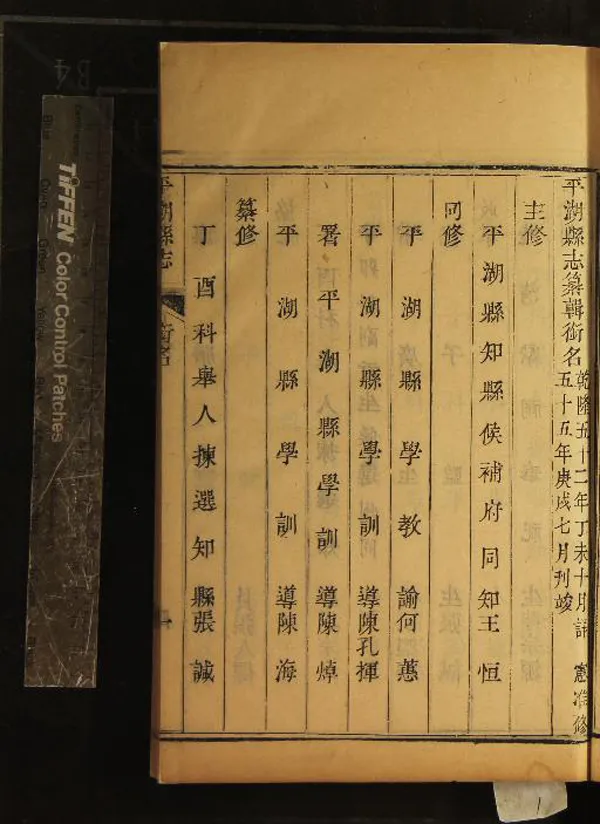 平湖縣志纂輯銜名乾隆五十二年丁未十月詳憲准修
五十五年庚戌七月刊竣
主修
平湖縣知縣侯補府同知王恒
同修
平湖縣學教諭何蕙
平湖縣學訓導陳孔揮
署平湖縣學訓導陳焯
平湖縣學訓導陳海
纂修
丁酉科舉人揀選知縣張諴
平湖縣志
銜名
TIFFEN Color Control Patches
B4
1